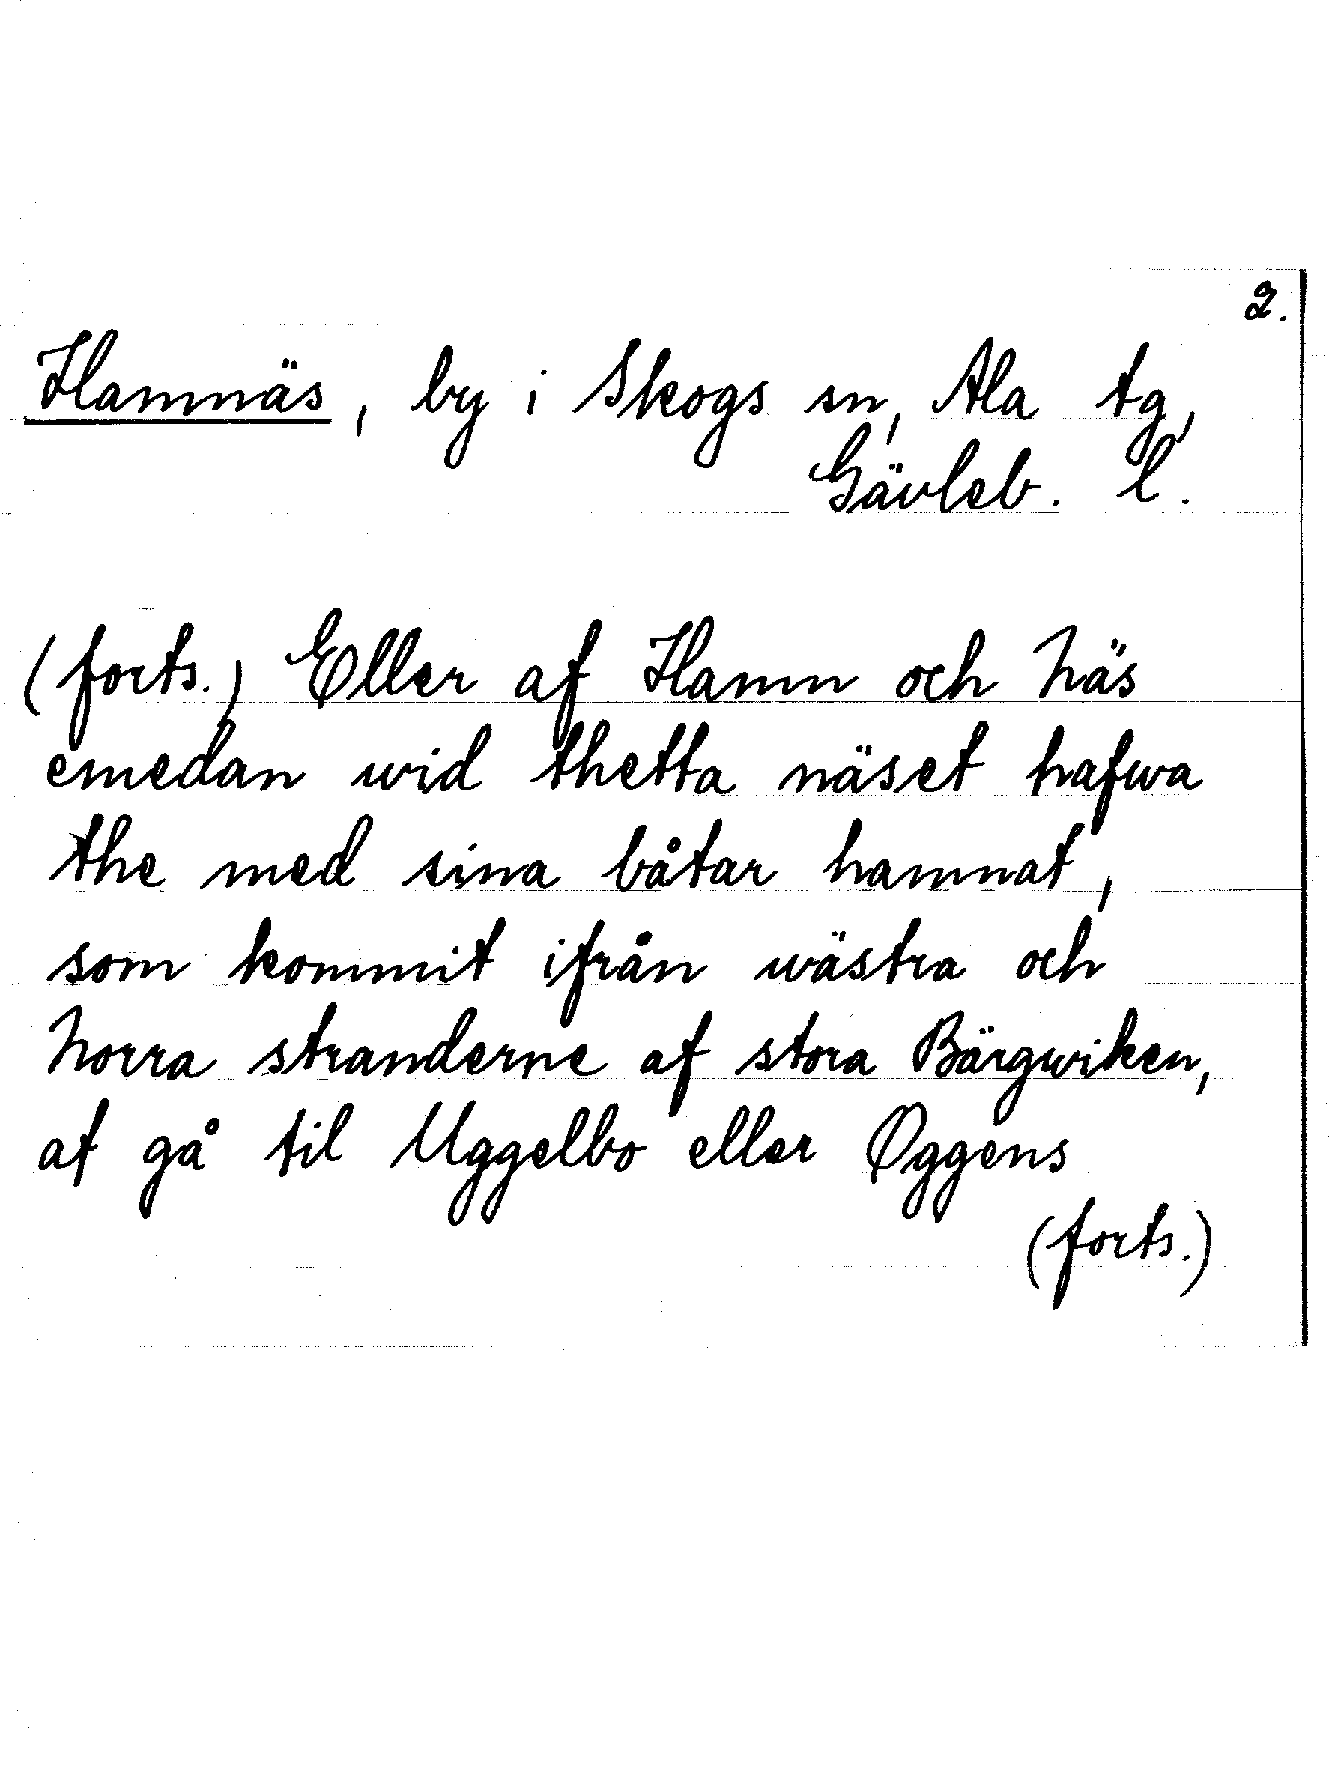 2.
Hamnäs, by i Skogs sn, Ala tg,
Gävleb. l.
(forts.) Eller af Hamn och Näs
emedan wid thetta näset hafwa
the med sina båtar hamnat,
som kommit ifrån wästra och
Norra stranderne af stora Bärgwiken,
at gå til Uggelbo eller Oggens
(forts.)